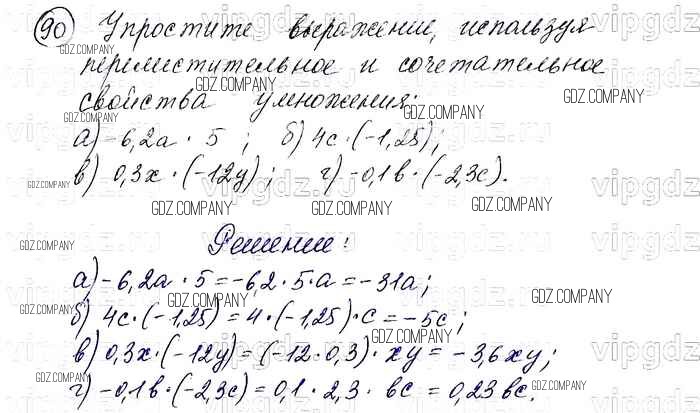 90 Упростите выражение, используя
переместительное и сочетательное
свойства умножения:
а) -6,2a · 5 ; б) 4c · (-1,25);
в) 0,3x · (-12y) ; г) -0,1b · (-2,3c).
Решение:
а) -6,2a · 5 = -6,2 · 5 · a = -31a;
б) 4c · (-1,25) = 4 · (-1,25) · c = -5c;
в) 0,3x · (-12y) = (-12 · 0,3) · xy = -3,6xy;
г) -0,1b · (-2,3c) = 0,1 · 2,3 · bc = 0,23bc.